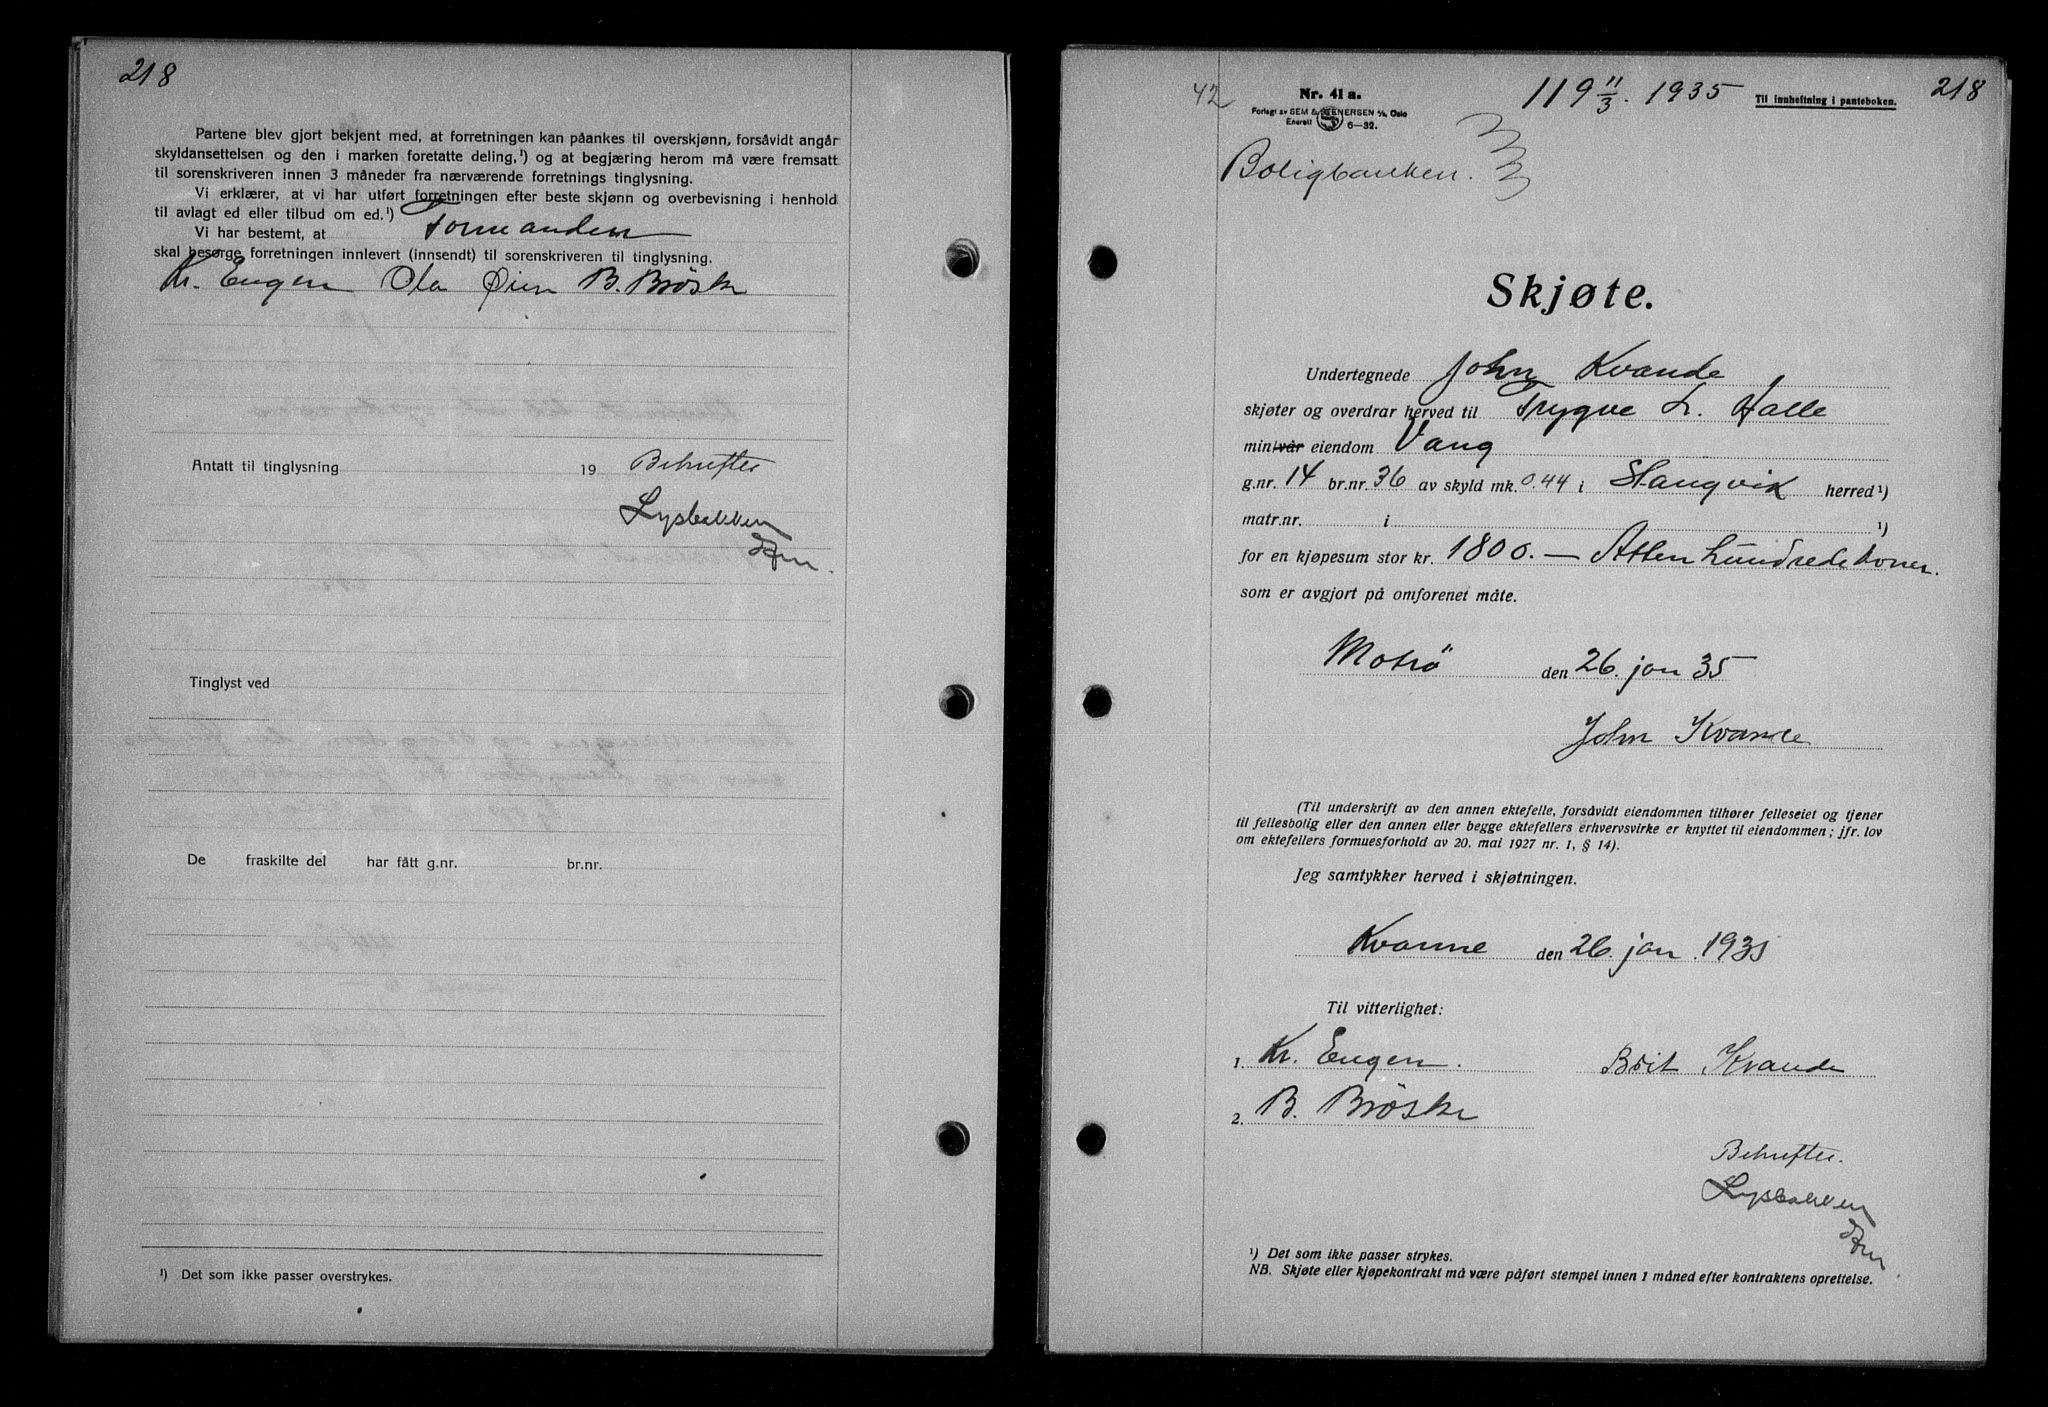 218
Partene blev gjort bekjent med, at forretningen kan påankes til overskjønn, forsåvidt angår
skyldansettelsen og den i marken foretatte deling,¹) og at begjæring herom må være fremsatt
til sorenskriveren innen 3 måneder fra nærværende forretnings tinglysning.
Vi erklærer, at vi har utført forretningen efter beste skjønn og overbevisning i henhold
til avlagt ed eller tilbud om ed.¹)
Vi har bestemt, at Formanden
skal besørge forretningen innlevert (innsendt) til sorenskriveren til tinglysning.
Kr. Engen Ola Øien B. Brøske
Antatt til tinglysning 19 Bekreftes
Lysbakken
Tinglyst ved
De fraskilte del har fått g.nr. br.nr.
¹) Det som ikke passer overstrykes.
42 Nr. 41 a. 119 11/3. 1935 Til innheftning i panteboken. 218
Forlagt av SEM & STENERSEN A/S, Oslo
Enerett 6—32.
Boligbanken.
Skjøte.
Undertegnede John Kvande
skjøter og overdrar herved til Trygve L. Halle
min/vår eiendom Vang
g.nr. 14 br.nr. 36 av skyld mk. 0.44 i Stangvik herred¹)
matr.nr. i ¹)
for en kjøpesum stor kr. 1800. — Atten hundrede kroner.
som er avgjort på omforenet måte.
den 26. jan 35
John Kvande
(Til underskrift av den annen ektefelle, forsåvidt eiendommen tilhører felleseiet og tjener
til fellesbolig eller den annen eller begge ektefellers erhvervsvirke er knyttet til eiendommen; jfr. lov
om ektefellers formuesforhold av 20. mai 1927 nr. 1, § 14).
Jeg samtykker herved i skjøtningen.
Kvanne den 26. jan. 1935
Til vitterlighet:
1. Kr. Engen. Brit Kvande
2. B. Brøske
Bekreftes.
Lysbakken
¹) Det som ikke passer strykes.
NB. Skjøte eller kjøpekontrakt må være påført stempel innen 1 måned efter kontraktens oprettelse.